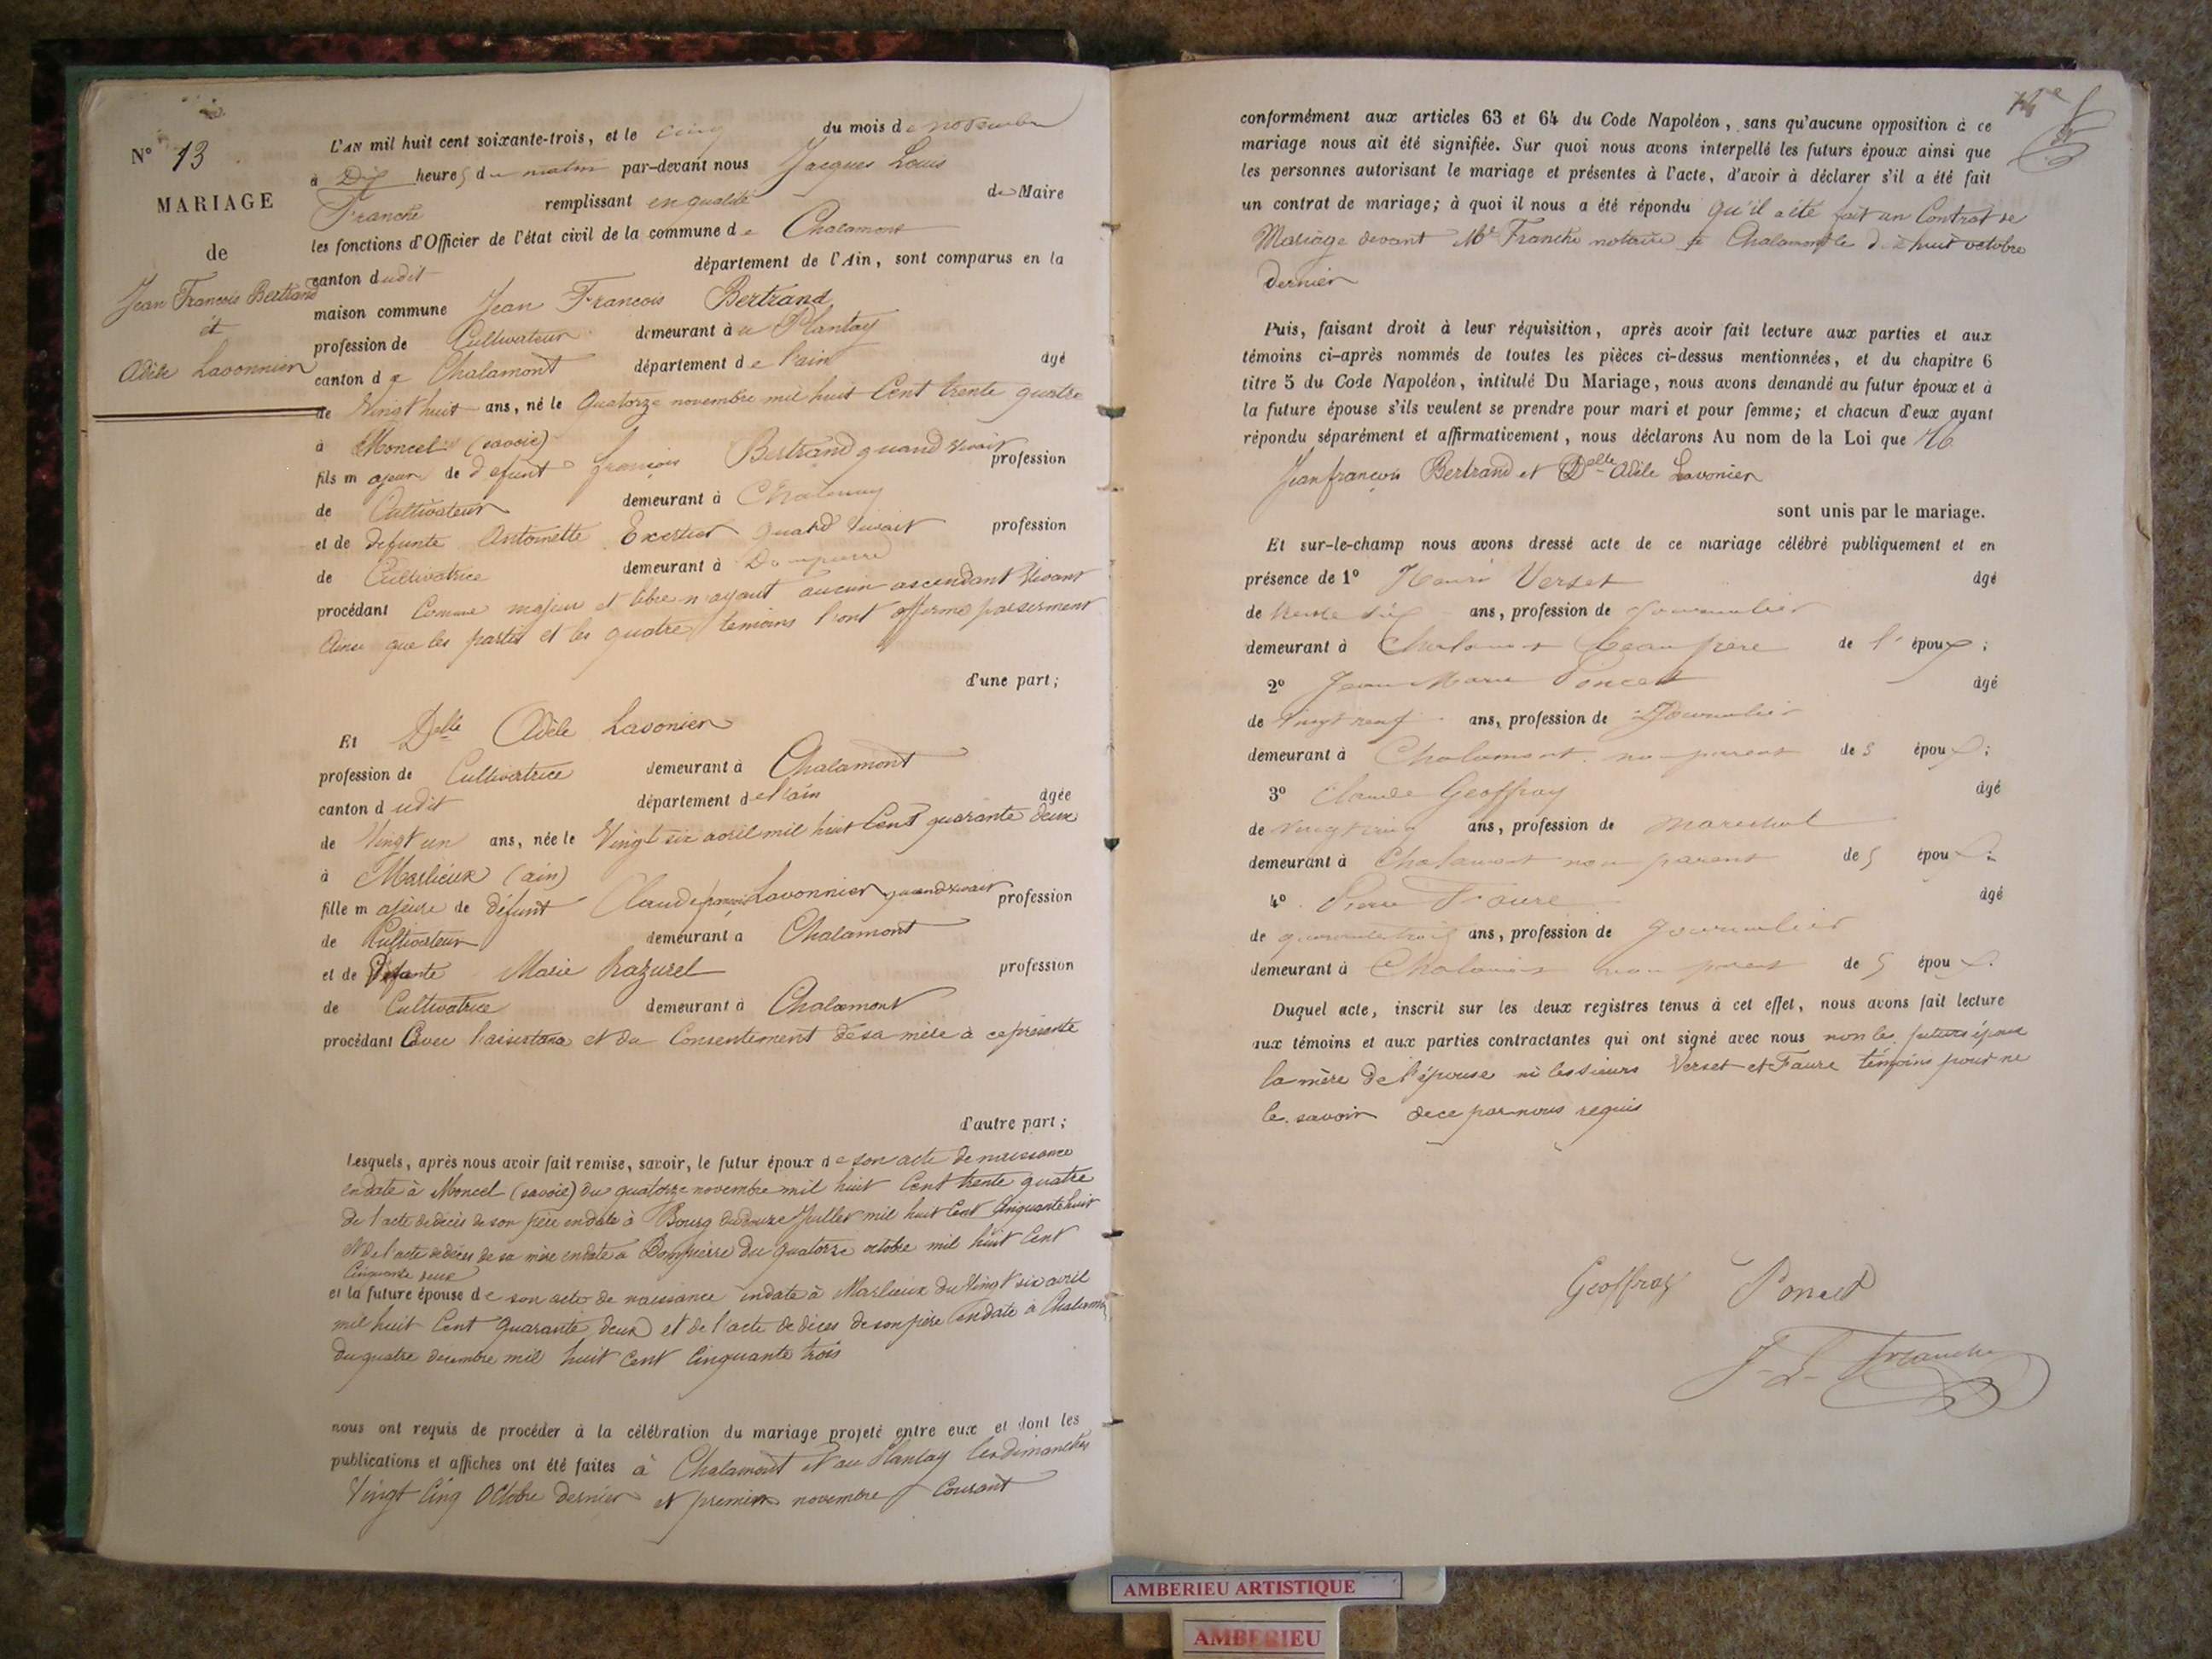 N° 13
MARIAGE
de
Jean François Bertrand
et
Adèle Lavonnier
L'AN mil huit cent soixante-trois, et le cinq du mois de novembre
à Dix heures du matin par-devant nous Jacques Louis
Franche remplissant en qualité de Maire
les fonctions d'Officier de l'état civil de la commune de Chalamont
canton dudit département de l'Ain, sont comparus en la
maison commune Jean François Bertrand
profession de Cultivateur demeurant au Plantay
canton de Chalamont département de l'ain âgé
de Vingt huit ans, né le Quatorze novembre mil huit Cent trente quatre
à Moncel (savoie)
fils majeur de défunt françois Bertrand quand vivait profession
de Cultivateur demeurant à Chatenay
et de defunte Antoinette Excertier quand vivait profession
de Cultivatrice demeurant à Dompierre
procédant Comme majeur et libre n'ayant aucun ascendant Vivant
Ainsi que les parties et les quatre temoins l'ont affirmé par serment
d'une part;
Et Delle Adèle Lavonier
profession de Cultivatrice demeurant à Chalamont
canton dudit département de l'ain âgée
de Vingt un ans, née le Vingt six avril mil huit Cent quarante deux
à Marlieux (ain)
fille majeure de défunt Claude françois Lavonnier quand vivait profession
de Cultivateur demeurant à Chalamont
et de Marie Razurel profession
de Cultivatrice demeurant à Chalamont
procédant Avec l'assistance et du Consentement de sa mère à ce présente
d'autre part;
Lesquels, après nous avoir fait remise, savoir, le futur époux de son acte de naissance
en date à Moncel (savoie) du quatorze novembre mil huit Cent trente quatre
de l'acte de décès de son père en date à Bourg du douze Juillet mil huit Cent Cinquante huit
et de l'acte de décès de sa mère en date à Dompierre du quatorze octobre mil huit Cent
Cinquante deux
et la future épouse de son acte de naissance en date à Marlieux du Vingt six avril
mil huit Cent Quarante deux et de l'acte de décès de son père en date à Chalamont
du quatre decembre mil huit Cent Cinquante trois
nous ont requis de procéder à la célébration du mariage projeté entre eux et dont les
publications et affiches ont été faites à Chalamont et au Plantay les dimanches
Vingt Cinq Octobre dernier et premier novembre Courant
conformément aux articles 63 et 64 du Code Napoléon, sans qu'aucune opposition à ce
mariage nous ait été signifiée. Sur quoi nous avons interpellé les futurs époux ainsi que
les personnes autorisant le mariage et présentes à l'acte, d'avoir à déclarer s'il a été fait
un contrat de mariage; à quoi il nous a été répondu Qu'il a été fait un Contrat de
Mariage devant Me Franche notaire à Chalamont le dix huit octobre
dernier
Puis, faisant droit à leur réquisition, après avoir fait lecture aux parties et aux
témoins ci-après nommés de toutes les pièces ci-dessus mentionnées, et du chapitre 6
titre 5 du Code Napoléon, intitulé Du Mariage, nous avons demandé au futur époux et à
la future épouse s'ils veulent se prendre pour mari et pour femme; et chacun d'eux ayant
répondu séparément et affirmativement, nous déclarons Au nom de la Loi que
Jean françois Bertrand et Delle Adèle Lavonier
sont unis par le mariage.
Et sur-le-champ nous avons dressé acte de ce mariage célébré publiquement et en
présence de 1° Henri Verset âgé
de trente six ans, profession de journalier
demeurant à Chalamont beau frère de l'époux;
2° Jean Marie Poncet âgé
de Vingt neuf ans, profession de Journalier
demeurant à Chalamont non parent des époux;
3° Claude Geoffray âgé
de vingt cinq ans, profession de marechal
demeurant à Chalamont non parent des époux;
4° Pierre Faure âgé
de quarante trois ans, profession de journalier
demeurant à Chalamont non parent des époux.
Duquel acte, inscrit sur les deux registres tenus à cet effet, nous avons fait lecture
aux témoins et aux parties contractantes qui ont signé avec nous non les futurs époux
la mère de l'épouse ni les sieurs Verset et Faure témoins pour ne
le savoir de ce par nous requis
Geoffray Poncet
J-L- Franche
AMBERIEU ARTISTIQUE
AMBERIEU